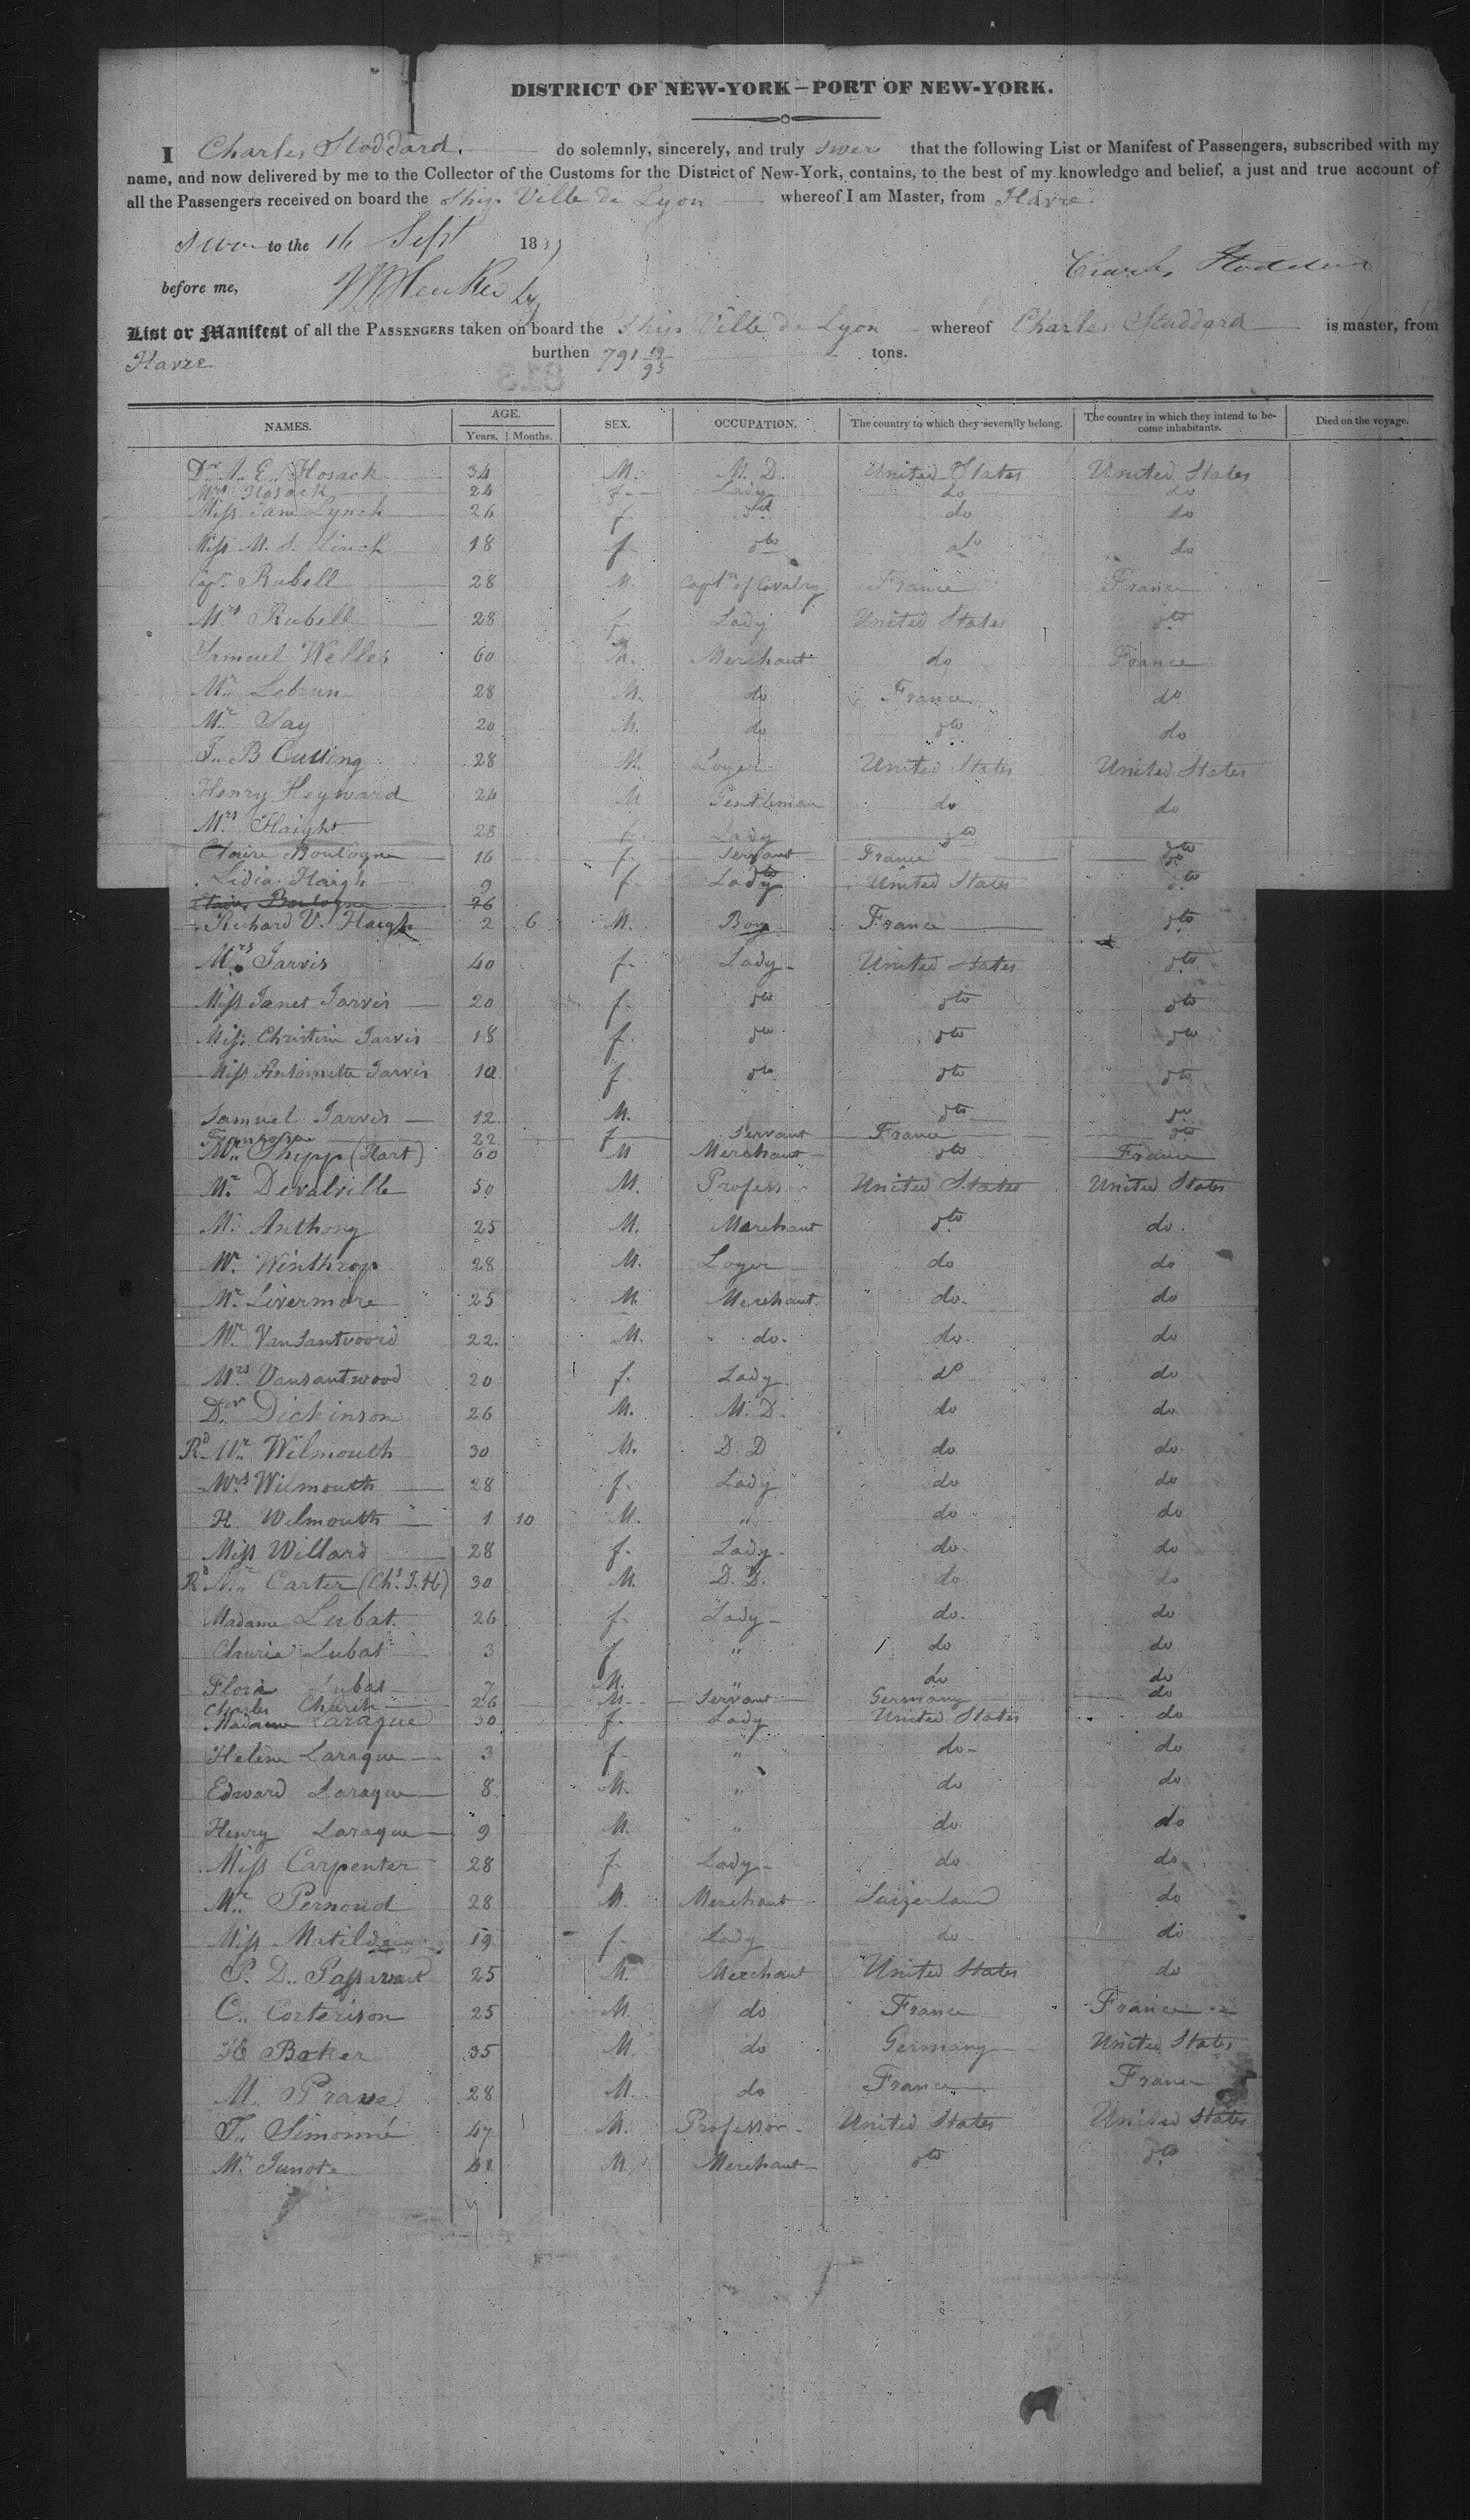 DISTRICT OF NEW-YORK—PORT OF NEW-YORK.
I Charles Stoddard. do solemnly, sincerely, and truly swere that the following List or Manifest of Passengers, subscribed with my
name, and now delivered by me to the Collector of the Customs for the District of New-York, contains, to the best of my knowledge and belief, a just and true account of
all the Passengers received on board the Ship Ville de Lyon whereof I am Master, from Havre.
to the 16 Sept 18
Charles Stoddard
before me,
List or Manifest of all the PASSENGERS taken on board the Ship Ville de Lyon whereof Charles Stoddard is master, from
Havre burthen 791 19/95 tons.
NAMES. AGE. Years. Months. SEX. OCCUPATION. The country to which they severally belong. The country in which they intend to become inhabitants. Died on the voyage.
Dr. A. E. Hosack 34 M. M. D. United States United States
Mrs Hosack 24 f. Lady do do
Miss Jane Lynch 26 f. do do
Miss M. S. Linch 18 f dto do do
Capt. Rabell 28 M. Captn of Cavalry France France
Mrs Rabell 28 f. Lady United States dto
Samuel Welles 60 M. Merchant do France
Mr. 28 M. do France do
Mr. Say 20 M. do dto do
F. B Cutting 28 M. Loyer United States United States
Henry Heyward 24 M Gentleman do do
Mrs Haight 28 f. Lady dto
Claire Boulogne 16 f. Servant France dto
Lidia Haigh 9 f. Lady United States dto
Claire Boulogne 26
Richard V. Haigh 2 6 M. Boy France dto
Mrs Jarvis 40 f. Lady United States dto
Miss Janet Jarvis 20 f. dto dto dto
Miss Christine Jarvis 18 f. dto dto dto
Miss Antoinette Jarvis 10 f. dto dto dto
Samuel Jarvis 12. M. dto do
22 f Servant France dto
Mr. (Hart) 60 M Merchant dto France
Mr. Devalville 50 M. Profess United States United States
Mr Anthony 25 M. Merchant dto do.
Mr. Winthrop 28 M. Loyer do do
Mr. Livermore 25 M. Merchant do. do
Mr. VanSantvoord 22. M. do. do. do
Mrs Vansantwood 20 f. Lady do do
Dr. Dickinson 26 M. M. D. do do
Rd Mr. Wilmouth 30 M. D. D do do.
Mrs Wilmouth 28 f. Lady do do
H. Wilmouth 1 10 M. " do do
Miss Willard 28 f. Lady do. do
Rd Mr. Carter (Chs. J. H) 30 M. D. D. do. do
Madame Lubat. 26 f. Lady do. do
Lubat 3 f " do do
Flora Lubat 7 M. " do do
Charles 26 M. Servant Germany do
Madame Laraque 30 f. Lady United States do
Helène Laraque 3 f. " do do
Edward Laraque 8 M. " do do
Henry Laraque 9 M. " do do
Miss Carpenter 28 f. Lady do. do.
Mr. Pernoud 28 M. Merchant Suizerland do
Miss Matilde 19 f. Lady do do
P. D. 25 M. Merchant United States do
C. Corterison 25 M. do France France
H Baker 35 M. do Germany United States
M. Prave 28 M. do France France
F. Simonné 47 M. Professor United States United States
Mr. Junot 41 M Merchant dto dto